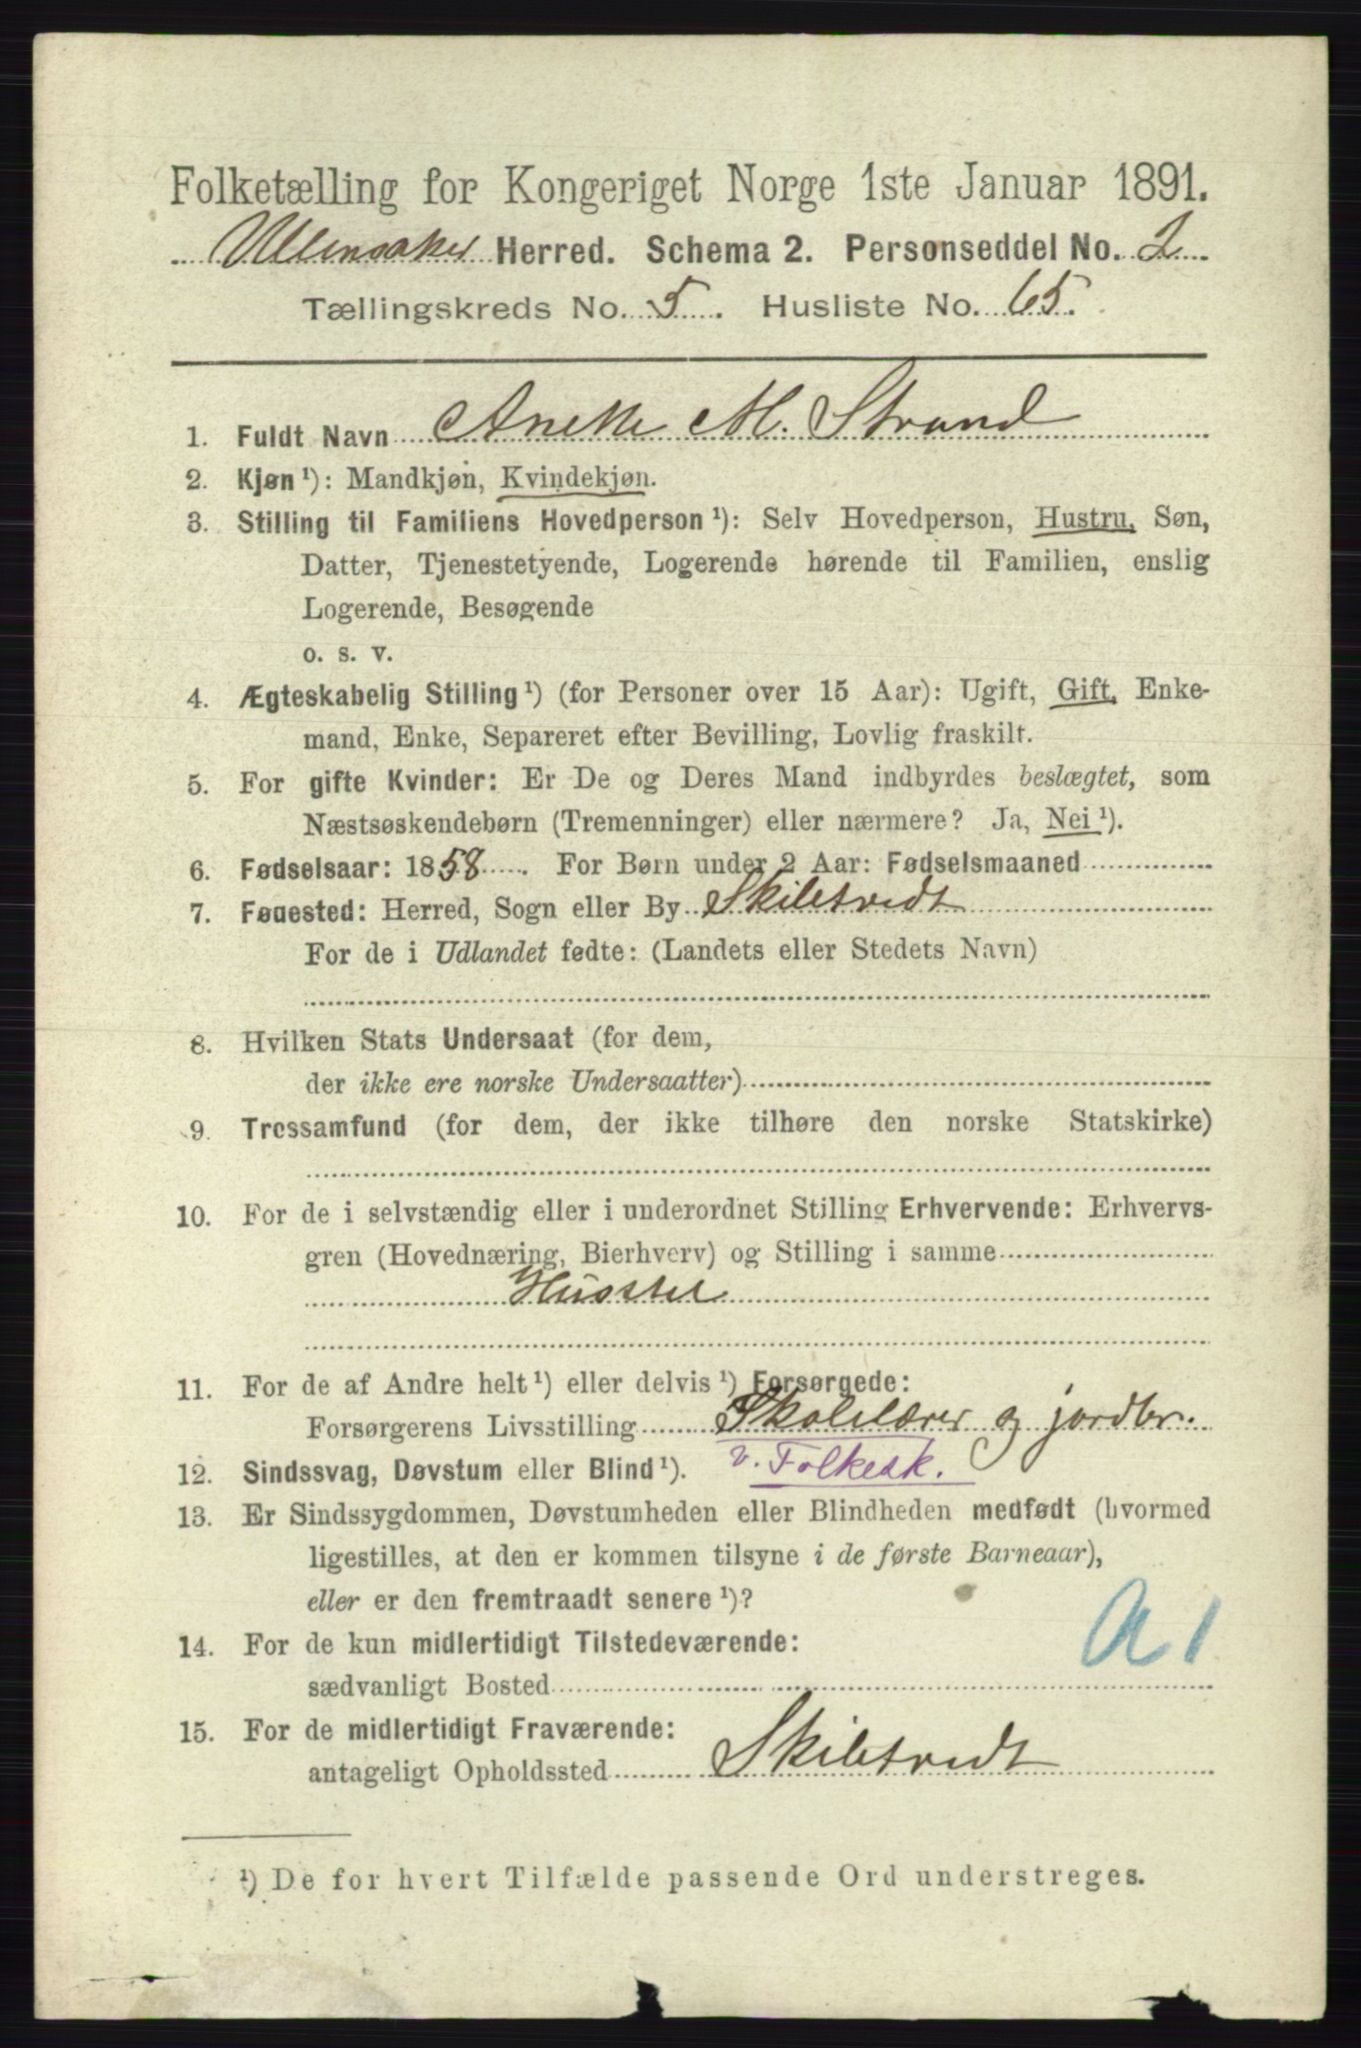 Folketælling for Kongeriget Norge 1ste Januar 1891.
Ullensaker Herred. Schema 2. Personseddel No. 2
Tællingskreds No. 5. Husliste No. 65.
1. Fuldt Navn Anette M. Strand
2. Kjøn ¹): Mandkjøn, Kvindekjøn.
3. Stilling til Familiens Hovedperson ¹): Selv Hovedperson, Hustru, Søn,
Datter, Tjenestetyende, Logerende hørende til Familien, enslig
Logerende, Besøgende
o. s. v.
4. Ægteskabelig Stilling ¹) (for Personer over 15 Aar): Ugift, Gift, Enke-
mand, Enke, Separeret efter Bevilling, Lovlig fraskilt.
5. For gifte Kvinder: Er De og Deres Mand indbyrdes beslægtet, som
Næstsøskendebørn (Tremenninger) eller nærmere? Ja, Nei ¹).
6. Fødselsaar: 1858. For Børn under 2 Aar: Fødselsmaaned
7. Fødested: Herred, Sogn eller By Skibtvedt
For de i Udlandet fødte: (Landets eller Stedets Navn)
8. Hvilken Stats Undersaat (for dem,
der ikke ere norske Undersaatter)
9. Trossamfund (for dem, der ikke tilhøre den norske Statskirke)
10. For de i selvstændig eller i underordnet Stilling Erhvervende: Erhvervs-
gren (Hovednæring, Bierhverv) og Stilling i samme
Husstel
11. For de af Andre helt ¹) eller delvis ¹) Forsørgede:
Forsørgerens Livsstilling Skolelærer og jordbr.
12. Sindssvag, Døvstum eller Blind ¹). v. Folkesk.
13. Er Sindssygdommen, Døvstumheden eller Blindheden medfødt (hvormed
ligestilles, at den er kommen tilsyne i de første Barneaar),
eller er den fremtraadt senere ¹)?
14. For de kun midlertidigt Tilstedeværende:
sædvanligt Bosted
a 1
15. For de midlertidigt Fraværende:
antageligt Opholdssted Skibtvedt
¹) De for hvert Tilfælde passende Ord understreges.